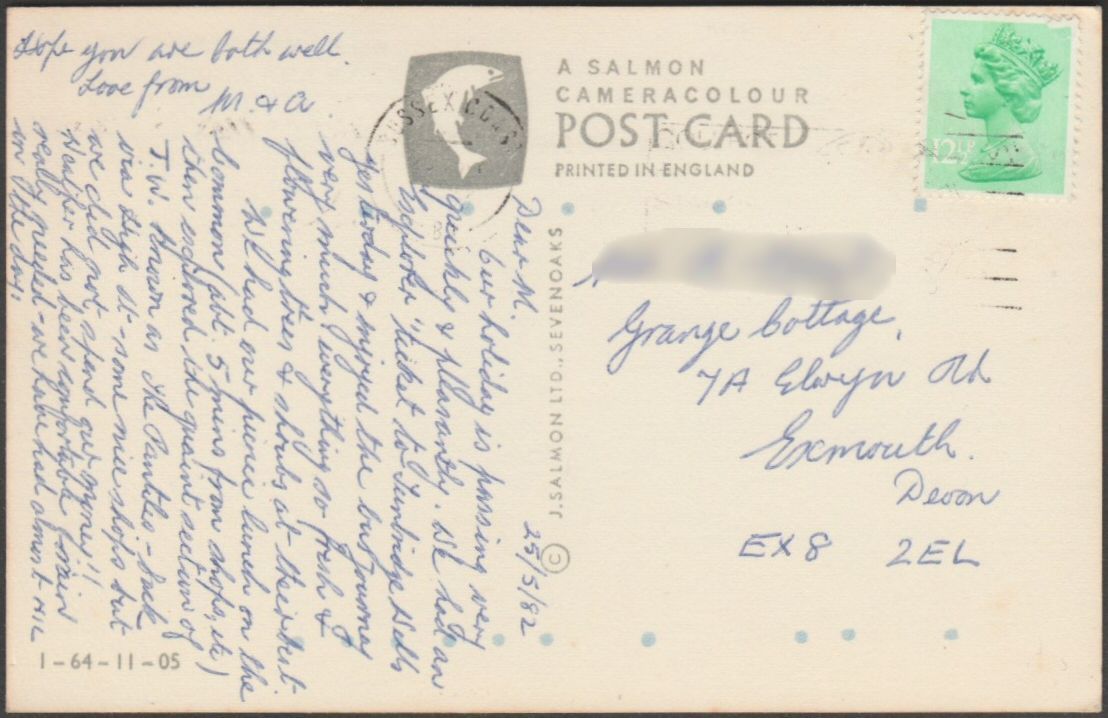 A SALMON
CAMERACOLOUR
POST CARD
PRINTED IN ENGLAND
12½P
SUSSEX COAST
J. SALMON LTD., SEVENOAKS ©
1-64-11-05
25/5/82
Dear M.
Our holiday is passing very
quickly & pleasantly. We had an
"Explorer" ticket to Tunbridge Wells
yesterday & enjoyed the bus journey
very much, everything so fresh &
flowering trees & shrubs at their best.
We had our picnic lunch on the
Common (abt. 5 mins from shops, etc)
then explored the quaint section of
T.W. known as the Pantiles - back
via High St - some nice shops but
we did not spend our money!!
Weather has been comfortable [rain]
really needed - we have had almost NIL
in the South
Hope you are both well.
Love from
M & A
Grange Cottage,
7A Elwyn Rd
Exmouth.
Devon
EX8 2EL